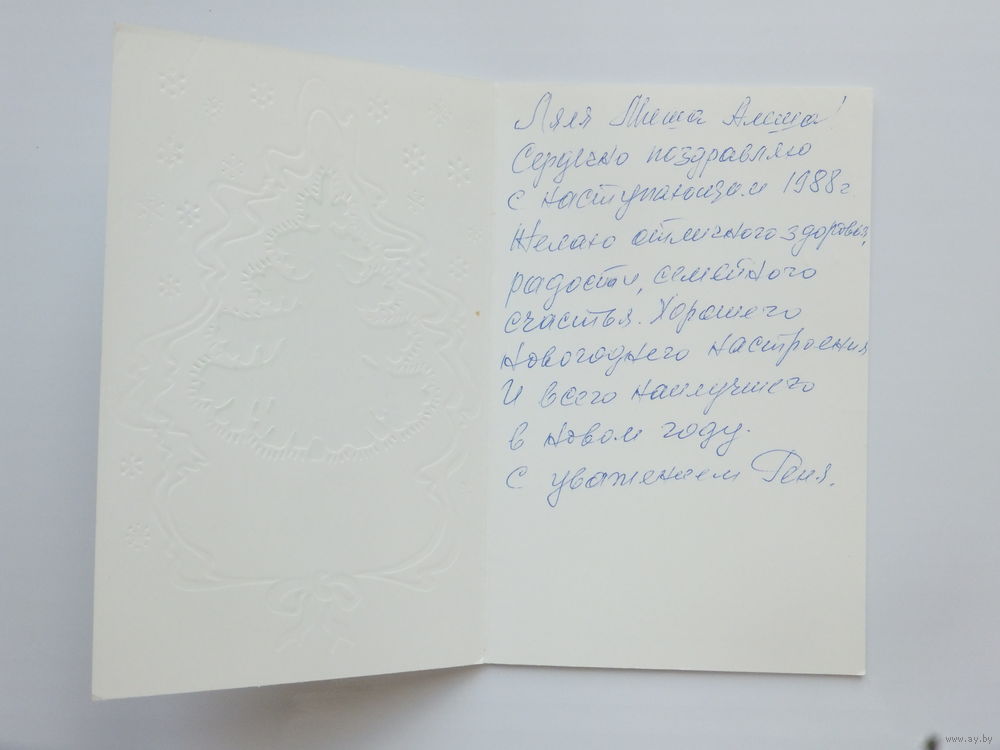 Ляля Миша Алиша!
Сердечно поздравляю
с наступающим 1988 г.
Желаю отличного здоровья,
радости, семейного
счастья. Хорошего
новогоднего настроения
И всего наилучшего
в новом году.
С уважением Геня.
www.ay.by